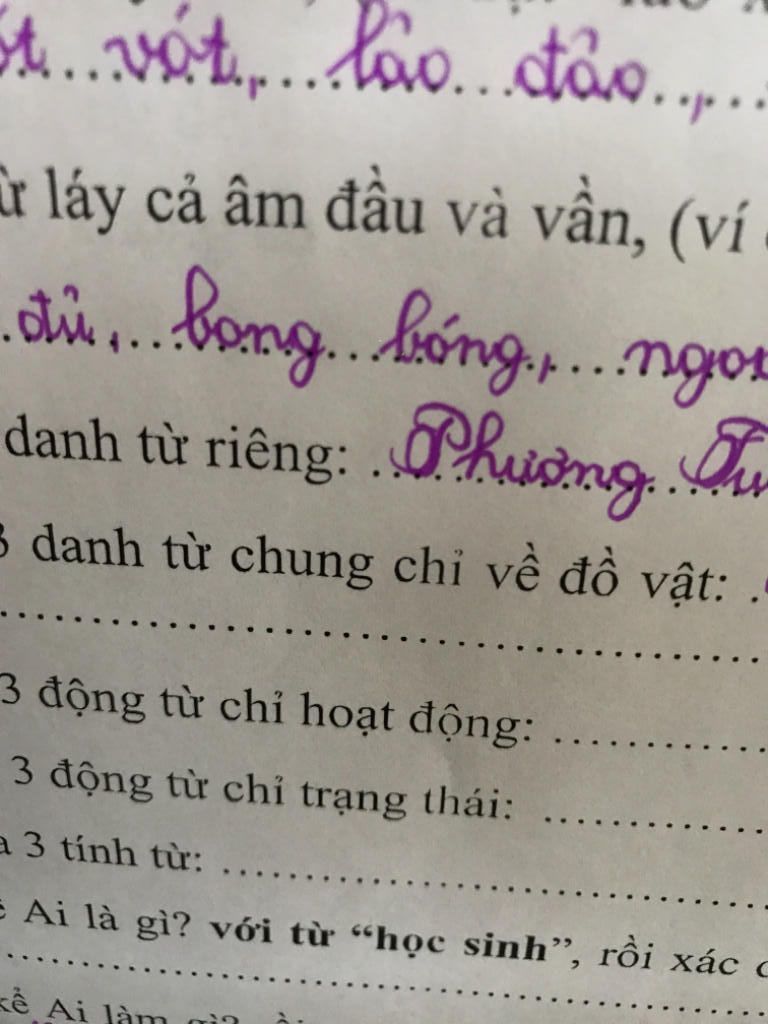 vót, lảo đảo.,
láy cả âm đầu và vần, (ví
đủ, bong bóng,
danh từ riêng: Phương
danh từ chung chỉ về đồ vật:
3 động từ chỉ hoạt động:
3 động từ chỉ trạng thái:
3 tính từ:
Ai là gì? với từ “học sinh”, rồi xác
kể Ai làm gì?